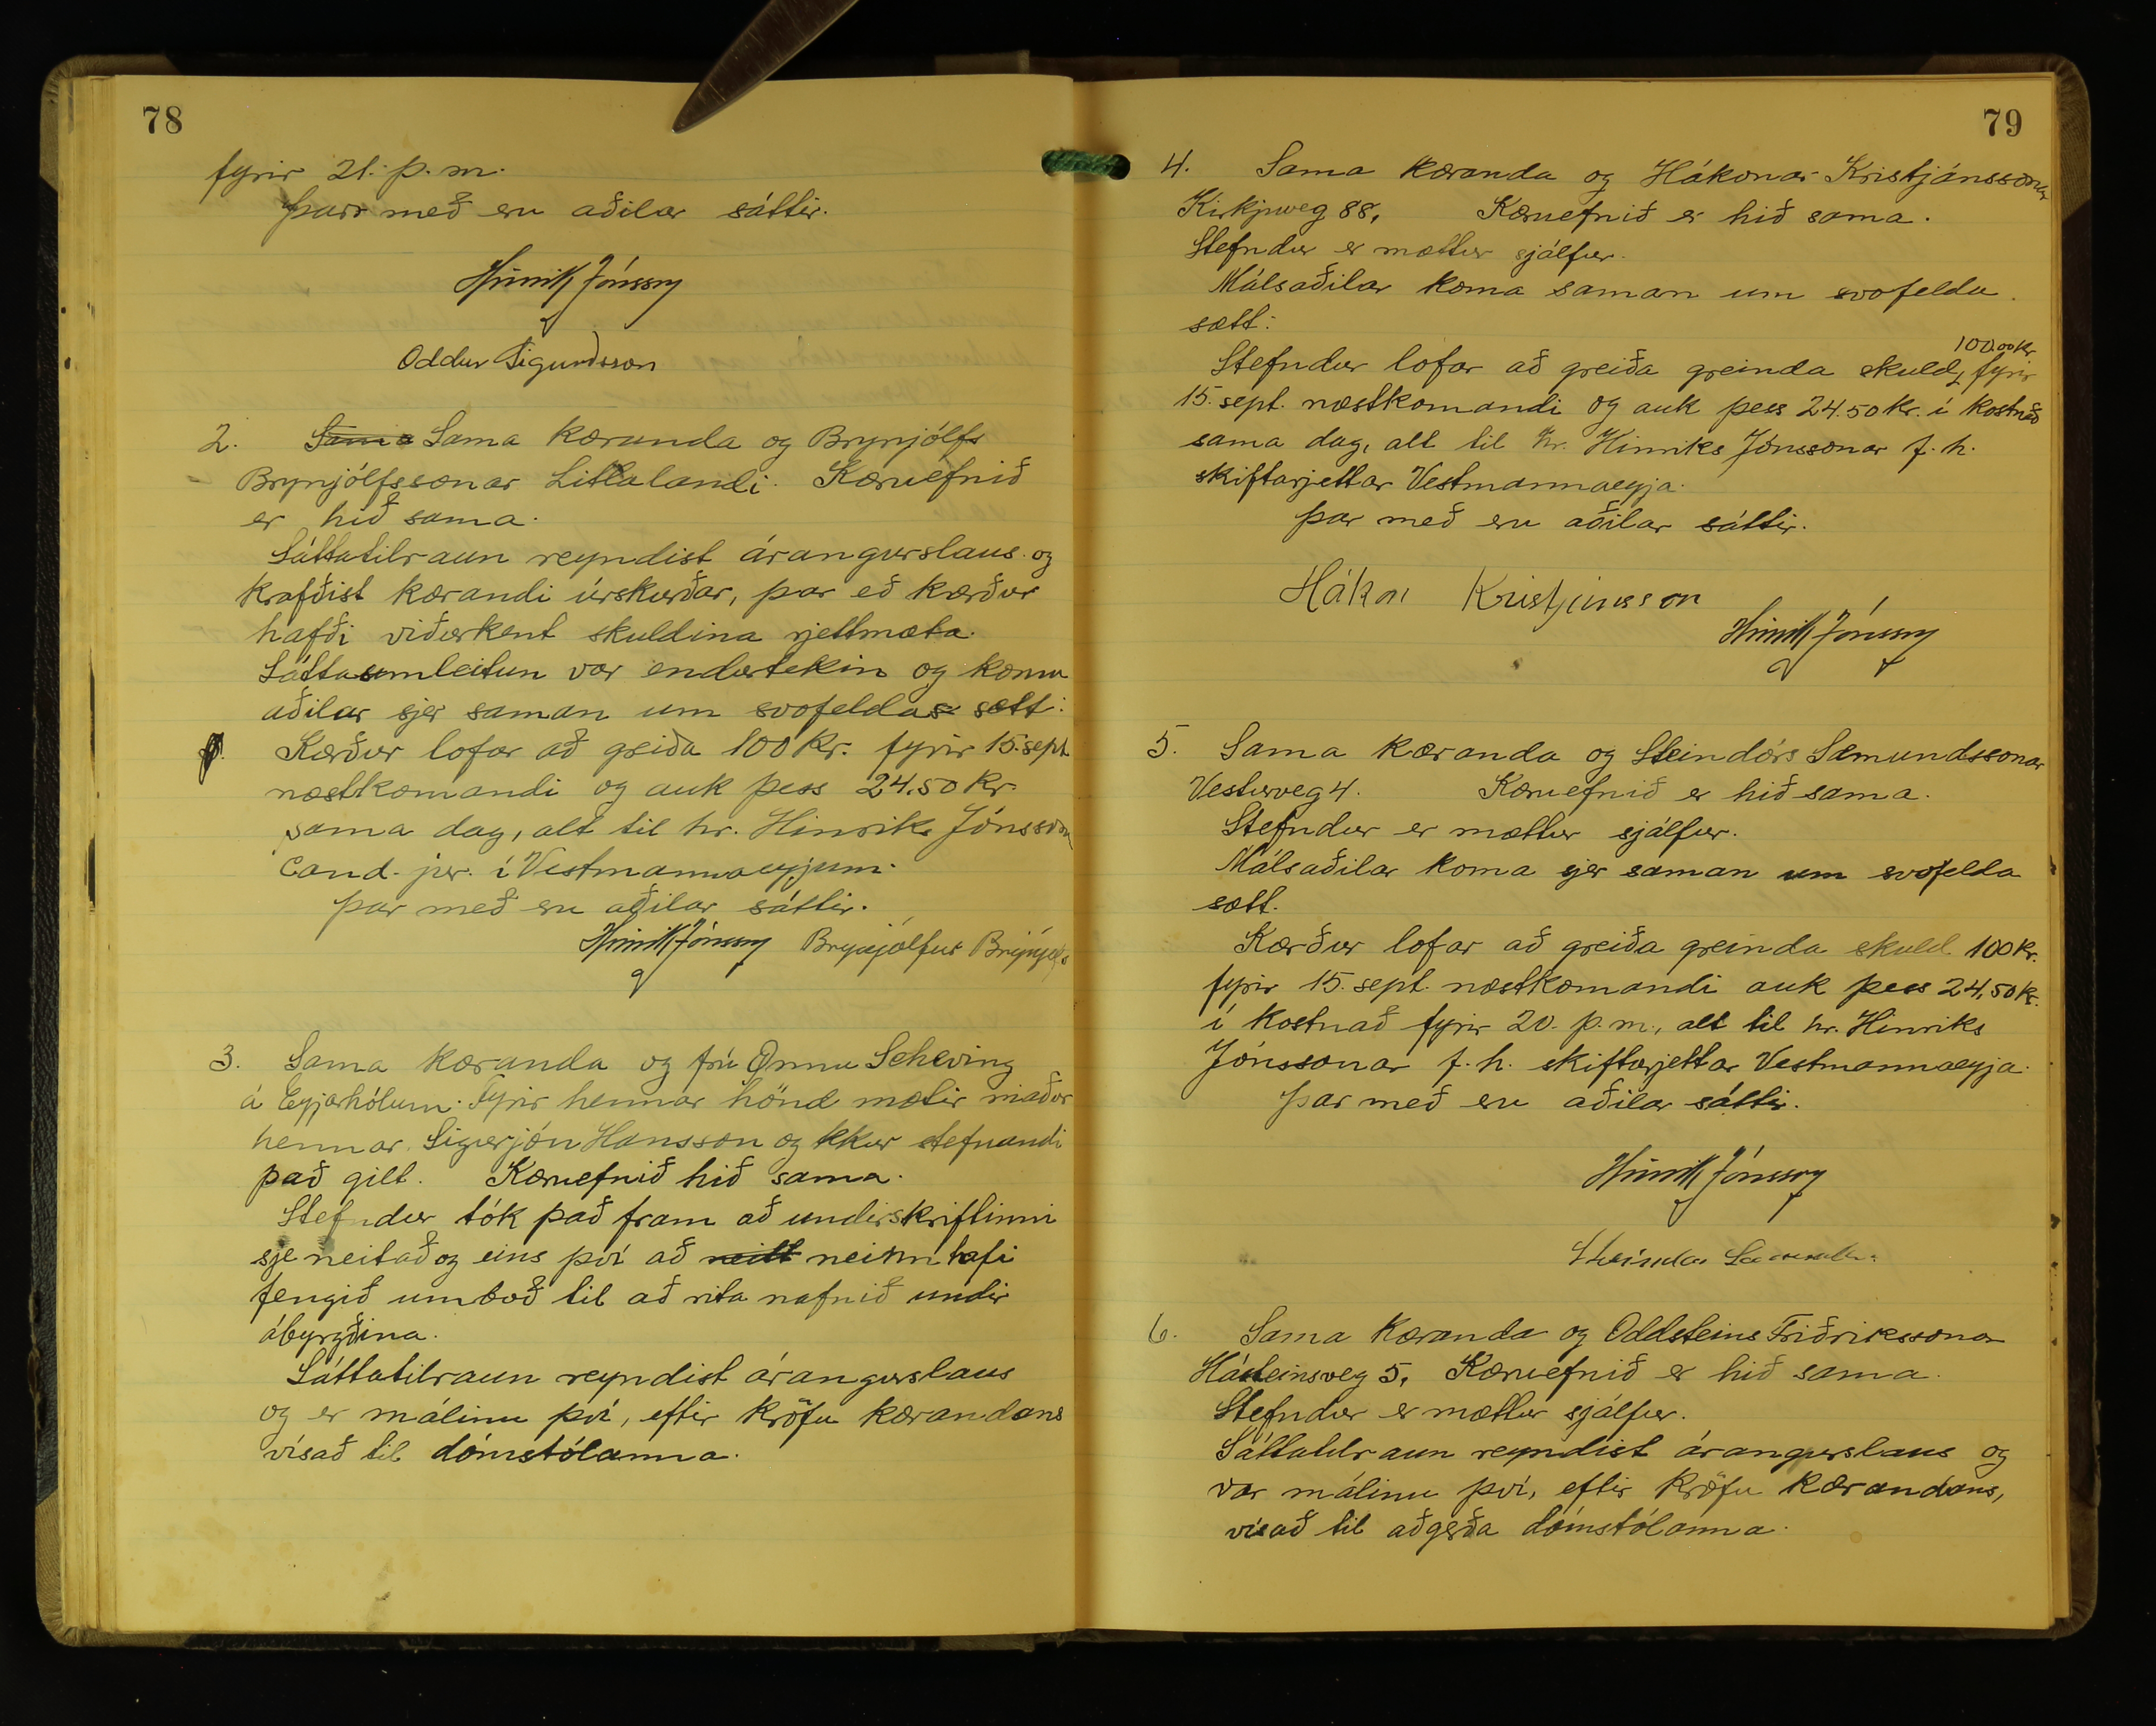 78
fyrir 21. þ.m.
Þarr með eru aðilar sáttir.
Hinrik Jónsson
Oddur Sigurdsson
2. Sama Sama kæranda og Brynjólfs
Brynjólfssonar Litlalandi. Kæruefnið
er hið sama.
Sáttatilraun reyndist árangurslaus og
krafðist kærandi úrskurðar, þar eð kærður
hafði viðurkent skuldina rjettmæta.
Sáttaumleitun var endurtekin og komu
aðilar sjer saman um svofelda sætt:
Kærður lofar að greiða 100 kr. fyrir 15. sept
næstkomandi og auk þess 24.50 kr
sama dag, alt til hr. Hinriks Jónssonar
Cand. jur. í Vestmannaeyjum.
Þar með eru aðilar sáttir.
Hinrik Jónsson Brynjólfur Brynjólfs
3. Sama kæranda og frú Önnu Scheving
á Eyjarhólum. Fyrir hennar hönd mætir maður
hennar Sigurjón Hansson og tekur stefnandi
það gilt. Kæruefnið hið sama.
Stefndur tók það fram að undirskriftinni
sje neitað og eins því að neitt neinn hafi
fengið umboð til að rita nafnið undir
ábyrgðina.
Sáttatilraun reyndist árangurslaus
og er málinu því, eftir kröfu kærandans
vísað til dómstólanna.
79
4. Sama kæranda og Hákonar Kristjánssonar
Kirkjuveg 88, Kæruefnið er hið sama.
Stefndur er mættur sjálfur.
Málsaðilar koma saman um svofelda
sætt:
100.00 kr
Stefndur lofar að greiða greinda skuld, fyrir
15. sept. næstkomandi og auk þess 24.50 kr. í kostnað
sama dag, alt til hr. Hinriks Jónssonar f.h.
skiftarjettar Vestmannaeyja.
Þar með eru aðilar sáttir.
Hákon Kristjánsson
Hinrik Jónsson
5. Sama kæranda og Steindórs Sæmundssonar
Vesturveg 4. Kæruefnið er hið sama.
Stefndur er mættur sjálfur.
Málsaðilar koma sjer saman um svofelda
sætt.
Kærður lofar að greiða greinda skuld 100 kr.
fyrir 15. sept. næstkomandi auk þess 24,50 kr.
í kostnað fyrir 20. þ.m., alt til hr. Hinriks
Jónssonar f.h. skiftarjettar Vestmannaeyja.
Þar með eru aðilar sáttir.
Hinrik Jónsson
6. Sama kæranda og Oddsteins Friðrikssonar
Hásteinsveg 5, Kæruefnið er hið sama.
Stefndur er mættur sjálfur.
Sáttatilraun reyndist árangurslaus og
var málinu því, eftir kröfu kærandans,
vísað til aðgerða dómstólanna.